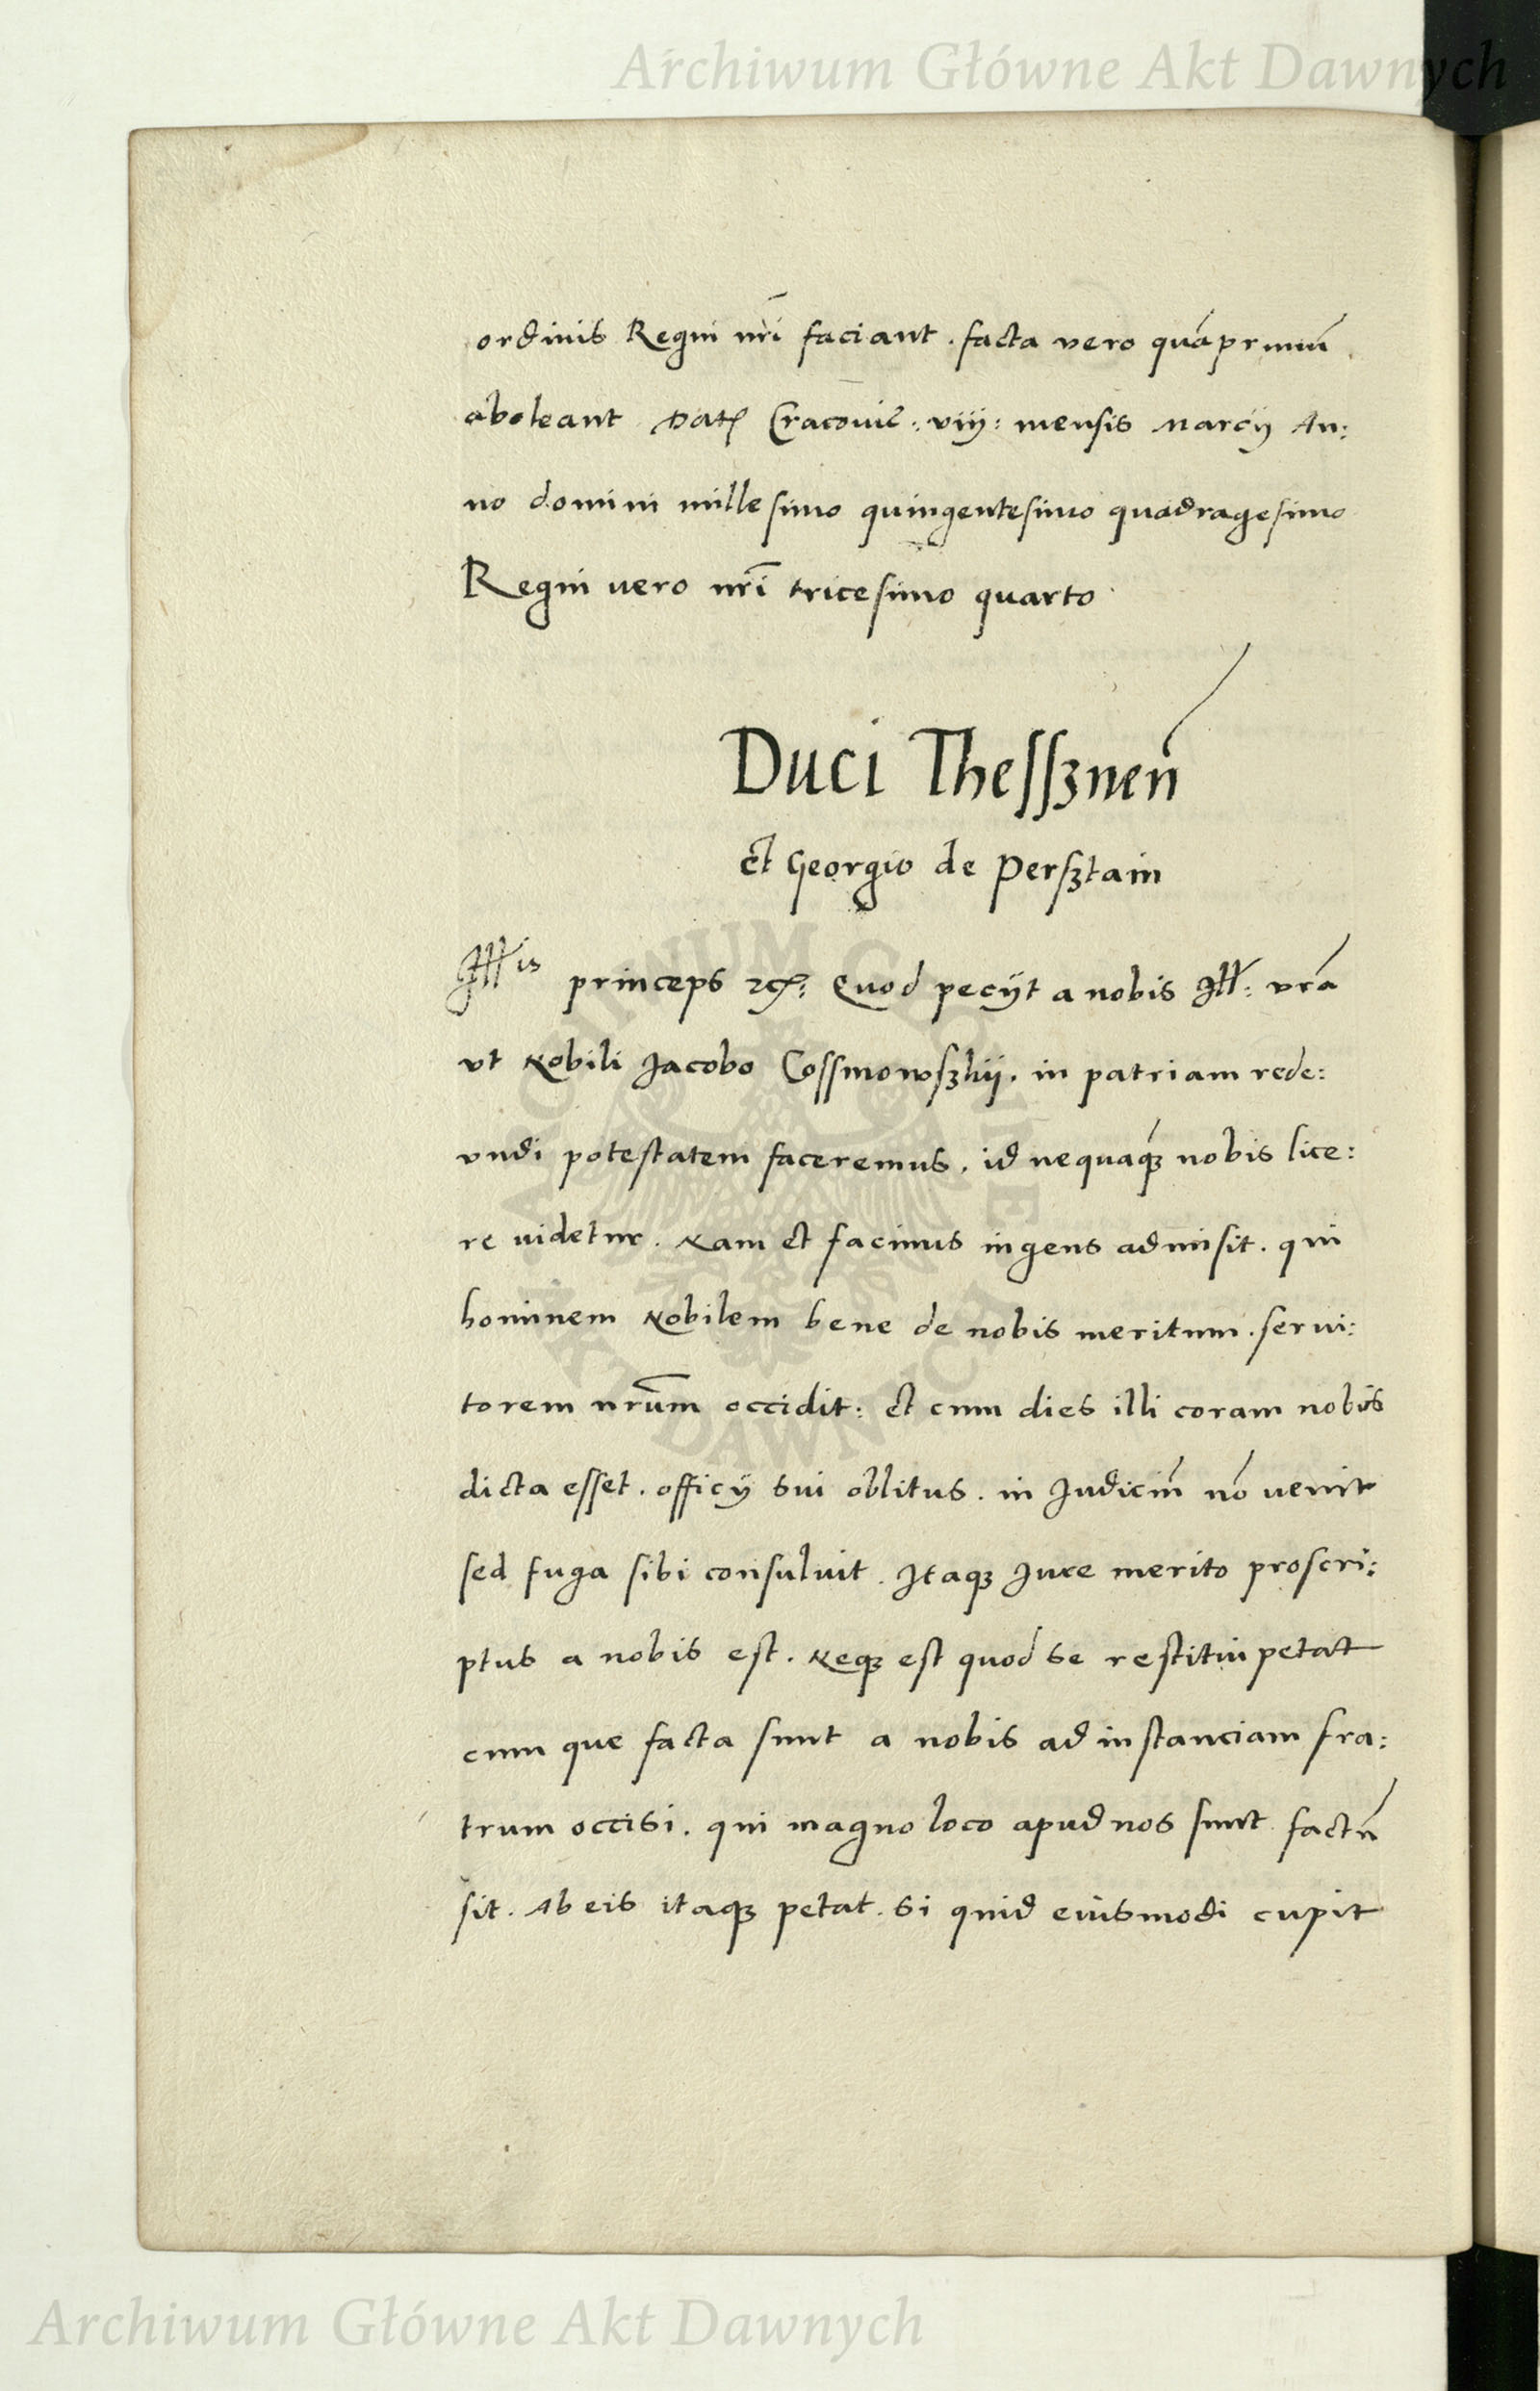 Archiwum Główne Akt Dawnych
ordinis Regni nr̃i faciant . facta vero quáprimũ
aboleant Datꝭ Cracovię : viij : mensis Marcij An:
no domini millesimo quingentesimo quadragesimo
Regni vero nr̃i tricesimo quarto
Duci Thessznen̄
et Georgio de Persztain
Illis princeps ꝛcꝭ: Quod pecijt a nobis Ill: vrã
vt Nobili Jacobo Cossmowszkij . in patriam rede:
undi potestatem faceremus . id nequaq́ꝫ nobis lice:
re videtur . Nam et facinus ingens admisit . qui
hominem Nobilem bene de nobis meritum . servi:
torem nrũm occidit : et cum dies illi coram nobis
dicta esset . officij sui oblitus . in Judiciũ nõ venit
sed fuga sibi consuluit . Itaqꝫ Jure merito proscri:
ptus a nobis est . Neqꝫ est quod se restitui petat
cum que facta sunt a nobis ad instanciam fra:
trum occisi . qui magno loco apud nos sunt factũ
sit . Ab eis itaqꝫ petat . si quid eiusmodi cupit
ARCHIWUM GŁÓWNE AKT DAWNYCH
Archiwum Główne Akt Dawnych